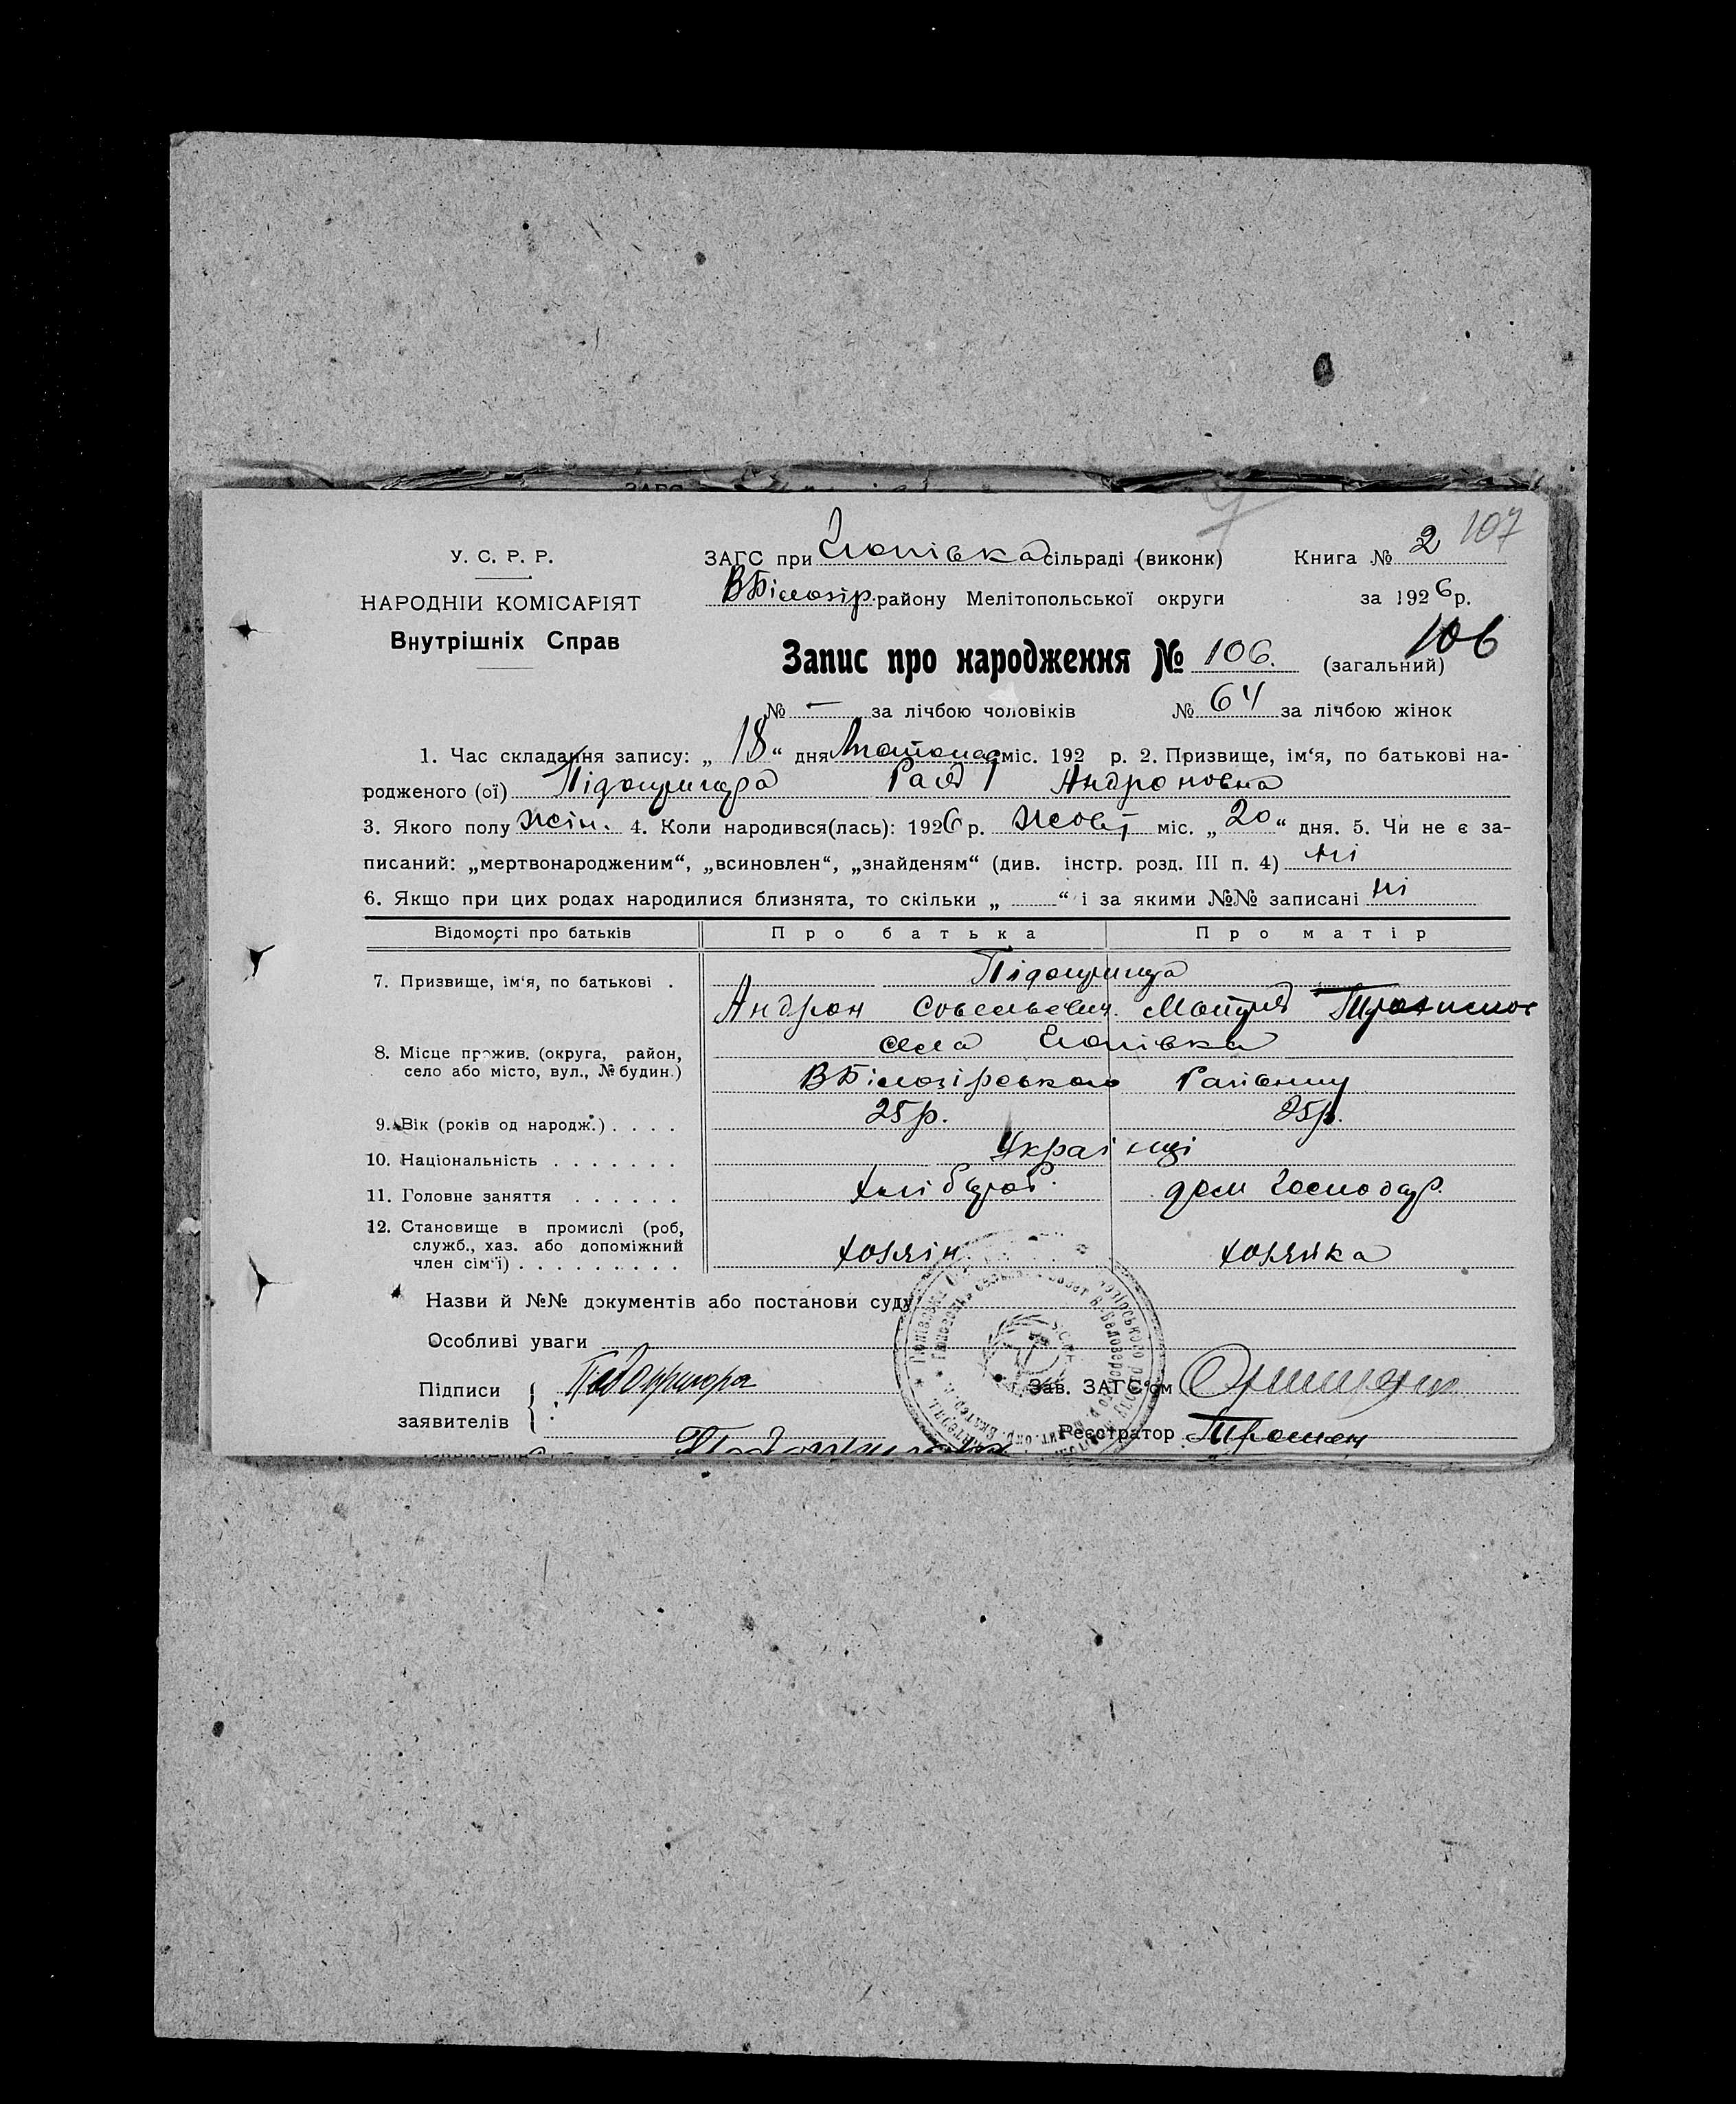 107
У. С. Р. Р.
ЗАГС при Гюнівка сільраді (виконк)
Книга № 2
НАРОДНІЙ КОМІСАРІЯТ
ВБілозір. району Мелітопольської округи
за 1926 р.
Внутрішніх Справ
106
Запис про народження № 106. (загальний)
№ — за лічбою чоловіків № 64 за лічбою жінок
1. Час складання запису: „ 18 “ дня Листопад міс. 192 р. 2. Призвище, ім‘я, по батькові на-
родженого (ої) Підопригора Рая Андроновна
3. Якого полу жін. 4. Коли народився(лась): 1926 р. Жовт міс. „ 20 “ дня. 5. Чи не є за-
писаний: „мертвонародженим“, „всиновлен“, „знайденям“ (див. інстр. розд. III п. 4) ні
6. Якщо при цих родах народилися близнята, то скільки „ “ і за якими №№ записані ні
Відомості про батьків Про батька Про матір
Підопригора
7. Призвище, ім‘я, по батькові .
Андрон Совельевич Мотря
села Гюнівка
8. Місце прожив. (округа, район,
село або місто, вул., № будин.)
ВБілозірського Району
9. Вік (років од народж.) . . . . 25 р. 25 р.
10. Національність . . . . . . . Українці
11. Головне заняття . . . . . . хлібороб. дом господар.
12. Становище в промислі (роб,
служб., хаз. або допоміжний
член сім‘ї) . . . . . . . . . хозяїн хозяйка
Назви й №№ документів або постанови суду
Особливі уваги
Підписи Підопригора Зав. ЗАГС‘ом
заявителів Реєстратор